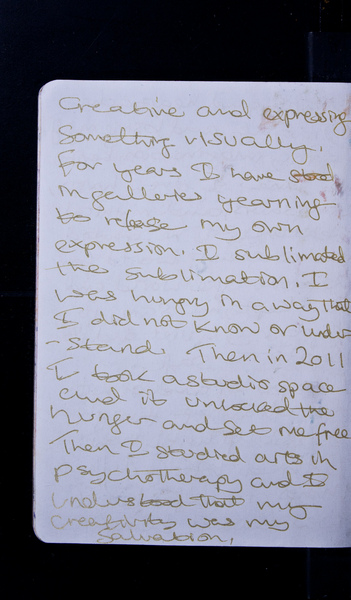 Creative and expressing
Something visually.
For years I have stood
in galleries yearning
to release my own
expression. I sublimated
the sublimation. I
was hungry in a way that
I did not know or under
-stand. Then in 2011
I took a studio space
and it unlocked the
hunger and set me free
Then I studied arts in
psychotherapy and I
understood that my
creativity was my
Salvation.